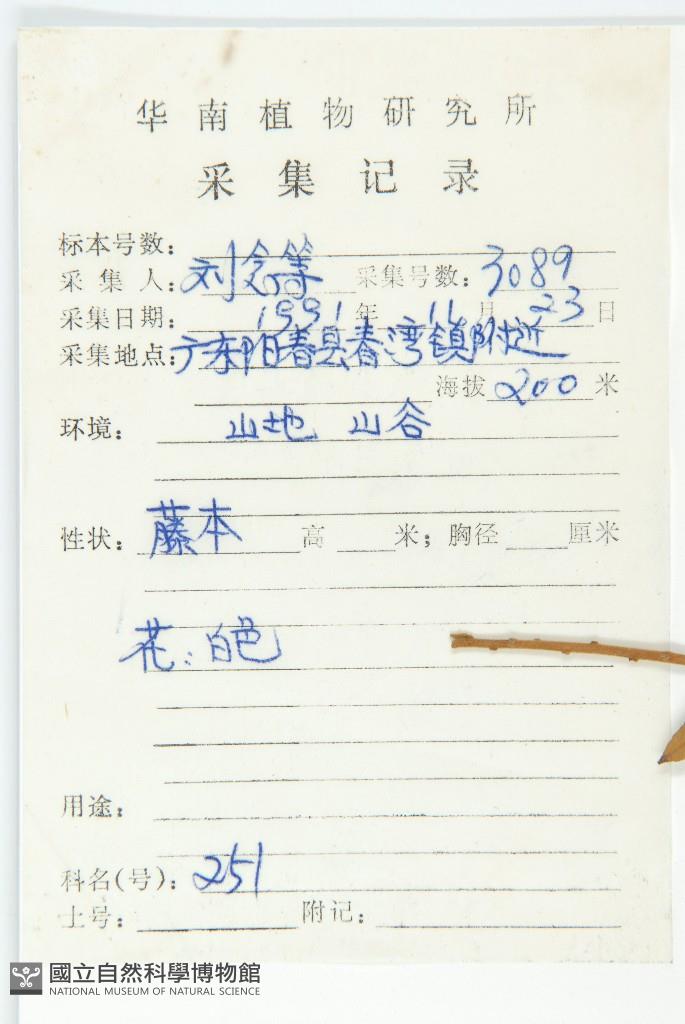 华南植物研究所
采集记录
标本号数:
采集人: 刘念等 采集号数: 3089
采集日期: 1991年11月23日
采集地点: 广东阳春县春湾镇附近
海拔 200 米
环境: 山地 山谷
性状: 藤本 高 米; 胸径 厘米
花: 白色
用途:
科名(号): 251
土号: 附记:
國立自然科學博物館
NATIONAL MUSEUM OF NATURAL SCIENCE